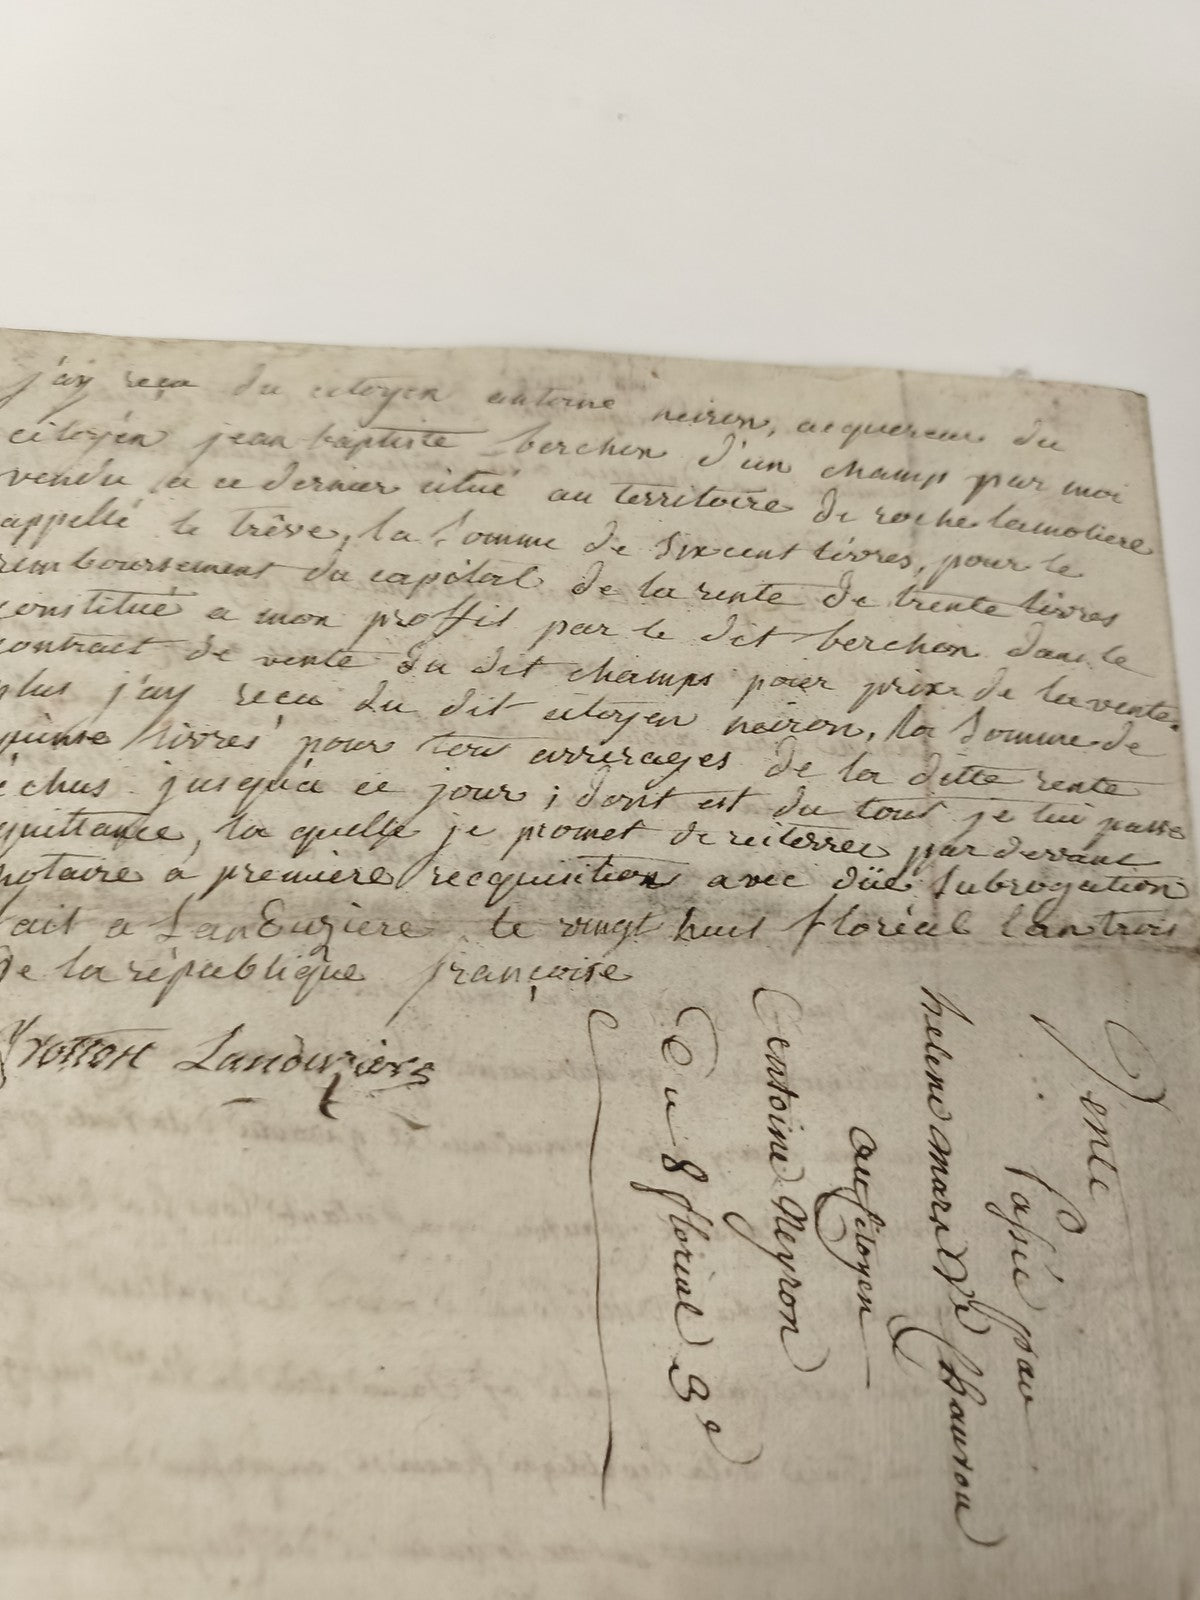 j'ay reçu du citoyen antoine neiron, acquereur du
citoyen jean baptiste berchon d'un champ par moi
vendu a ce dernier citué au territoire de roche lamoliere
appellé le trêve, la somme de sixcent livres, pour le
remboursement du capital de la rente de trente livres
constitué a mon proffit par le dit berchon dans le
contract de vente du dit champs pour prix de la vente.
plus j'ay recu du dit citoyen neiron, la somme de
quinse livres pour tous arrerages de la ditte rente
échus jusqu'a ce jour ; dont est du tout je lui passe
quittance, la quelle je promet de reiterrer par devant
notaire a premiere recquisition avec düe subrogation
fait a LanDuziere le vingt huit floréal l'an trois
de la république françoise
Landuziere
Vente
Passée par
helene mare Ve Chauvou
au Citoyen
antoine Neyron
Du 8 floréal 3e